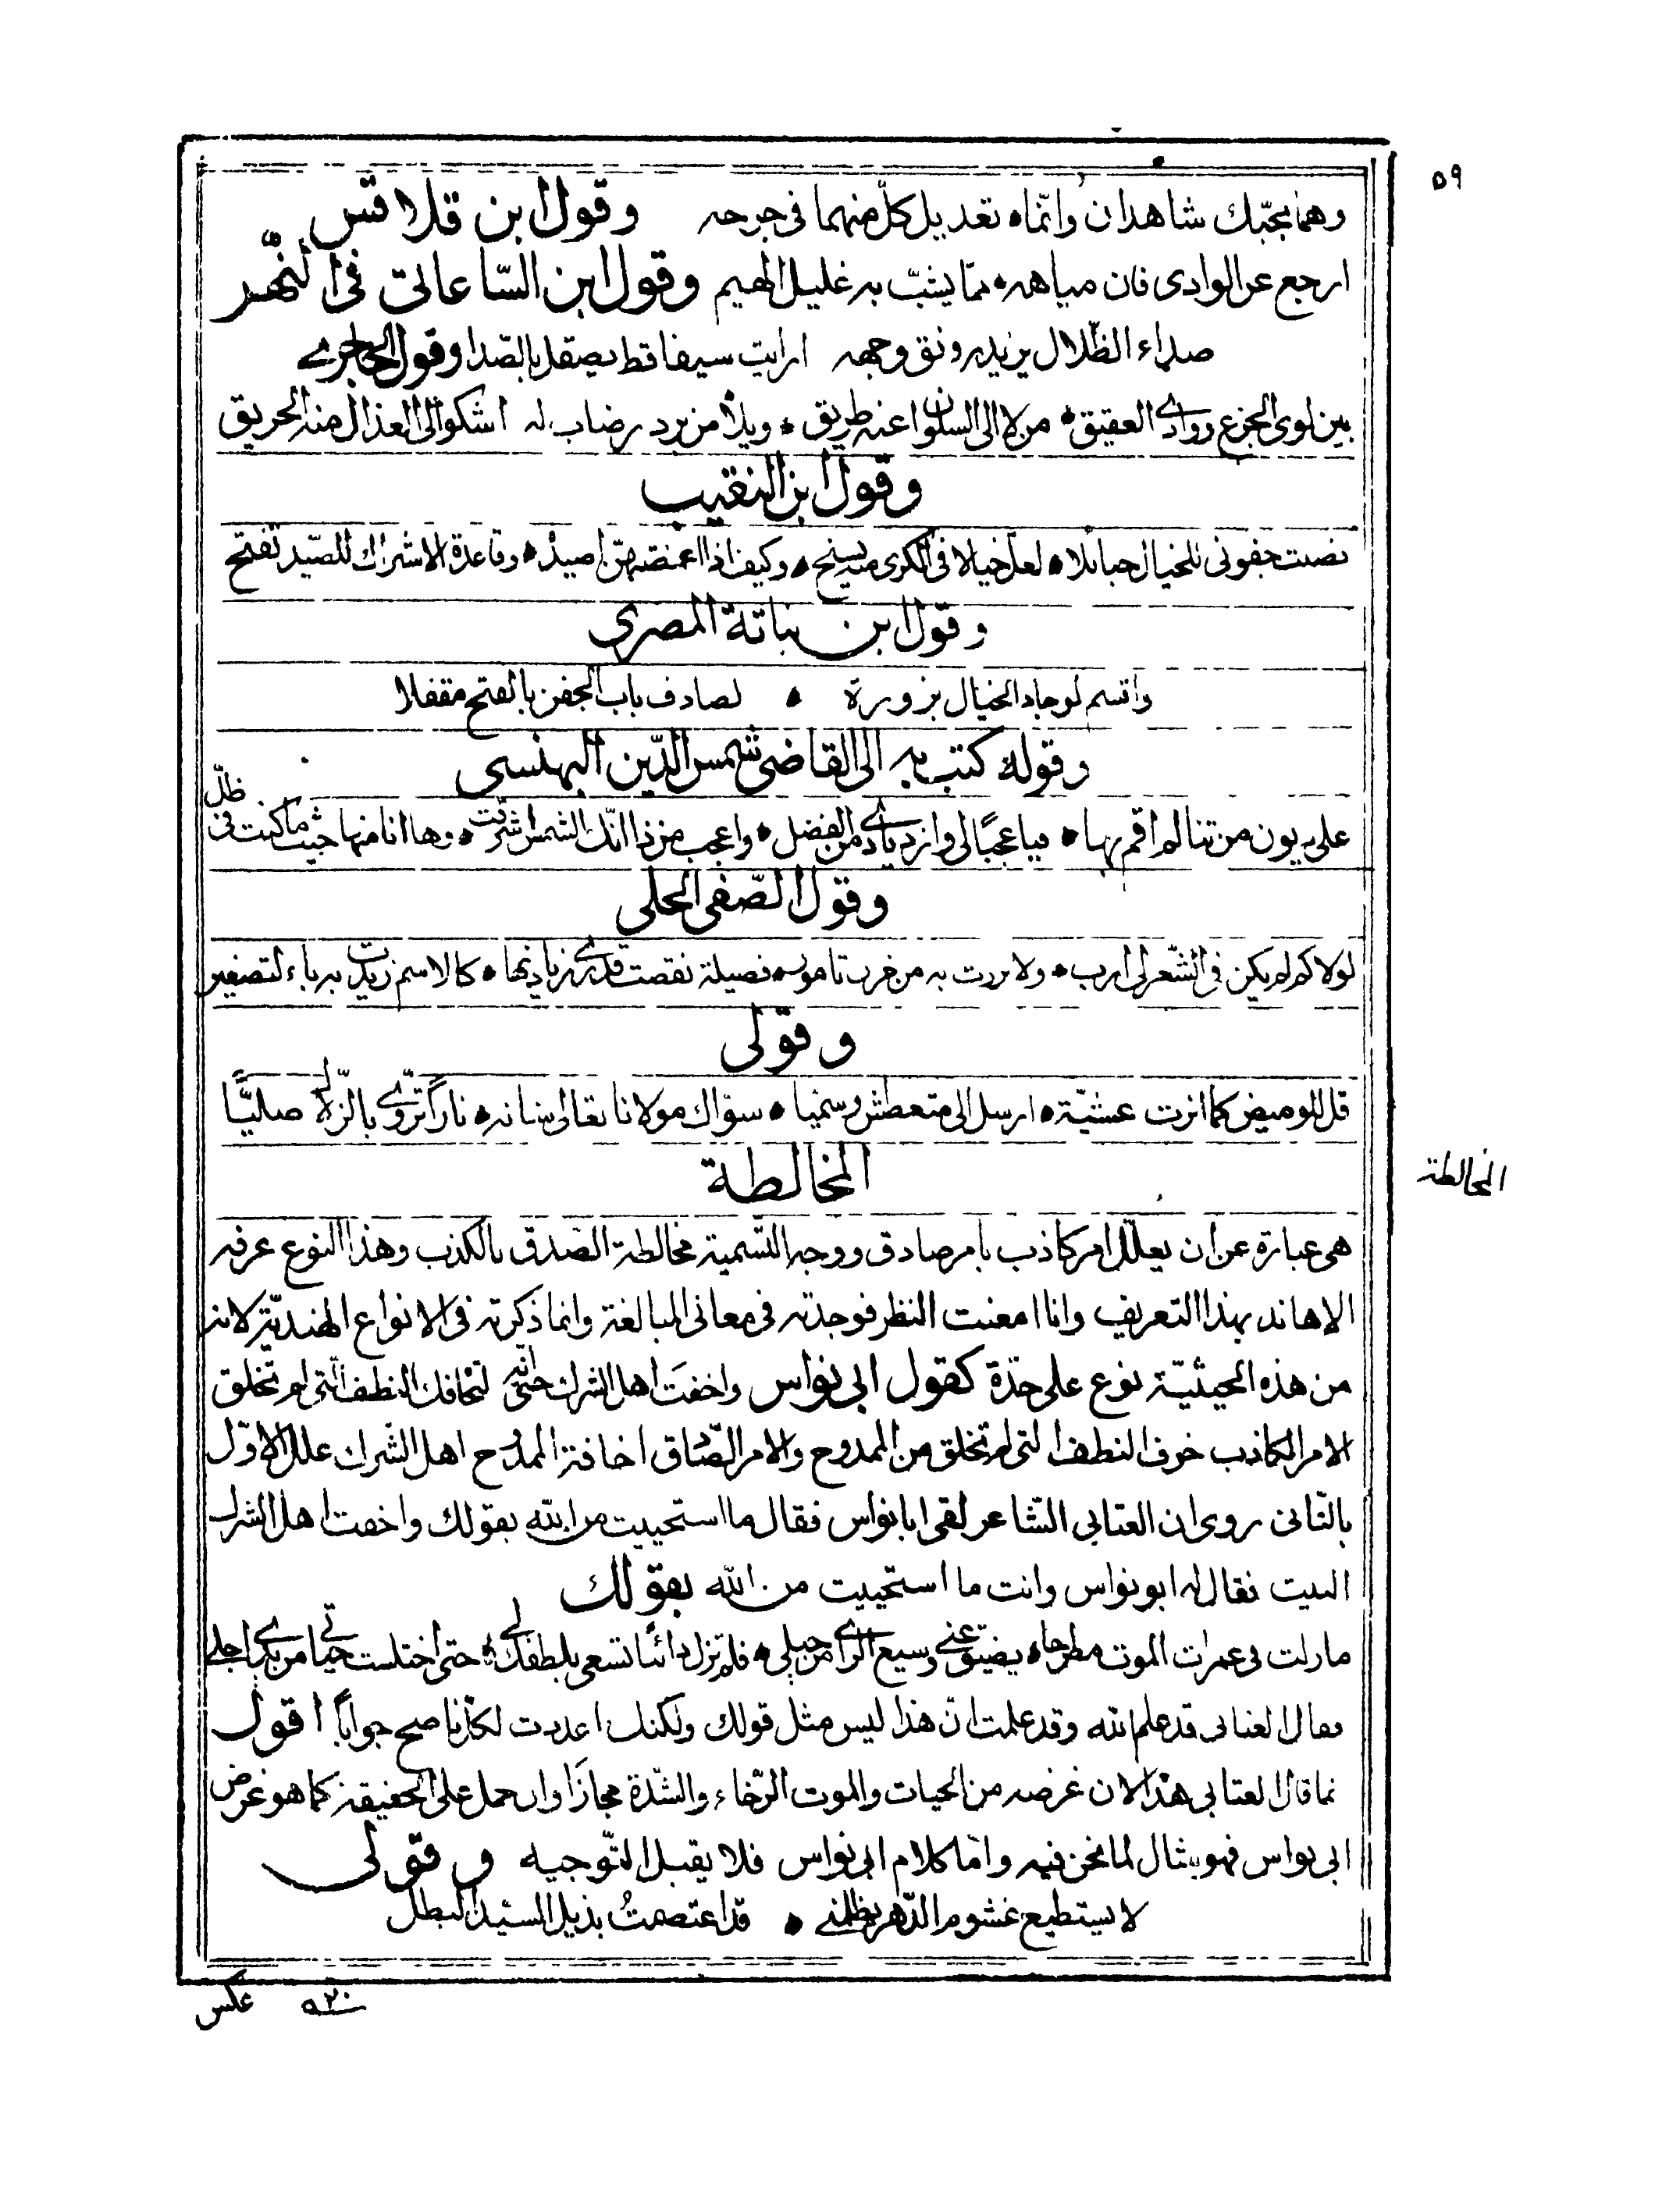 ٥٩
وهما بمحبّك شاهدان وانّما ٥ تعديل كلّ منهما فى جرحه وقول ابن قلاقس
ارجع عن الوادى فان مياهه ٥ ممّا يشبّ به غليل الهيم وقول ابن السّاعاتى فى النّهر
صداء الظّلال يزيد رونق وجهه ارايت سيفا قط يصقل بالصّدا وقول الحاجرى
بين لوى الجزع ووادى العقيق ٥ من لا الى السلوان عنه طريق ٥ ويلاٰ من برد رضاب له اشكو الى العذال منه الحريق
وقول ابن النقيب
نصبت جفونى للخيال حبائلا ٥ لعل خيالا فى الكرى منه يسنح ٥ وكيف اذا اغمضتهنّ اصيده ٥ وقاعدة الاشراك للصّيد تفتح
وقول ابن نباتة المصرى
واقسم لو جاد الخيال بزورة ٥ لصادف باب الجفن بالفتح مقفلا
وقوله كتب به الى القاضى شمس الدّين البهنسى
على ديون من ثنا لم اقم بها ٥ فيا عجبًا لى وازديادى من الفضل ٥ واعجب من ذا انّك الشمس اشرقت ٥ وها انا منها حيث ما كنت فى ظلّ
وقول الصّفى الحلى
لولاكم لم يكن فى الشّعر لى ارب ٥ ولا بررت به من غرب تامور ٥ فضيلة نقصت قدرى زيادتها ٥ كالاسم زيدت به ياء لتصغير
وقولى
قل للوميض كما انرت عشيّة ٥ ارسل الى متعطش وسميا ٥ سؤاك مولانا تعالى شانه ٥ نارًا تروّى بالزّلال صليًّا
المخالطة
المخالطة
هى عبارة عن ان يعلّل امر كاذب بامر صادق ووجه التّسمية مخالطة الصّدق بالكذب وهذا النوع عرفه
الاهاند بهذا التعريف وانا امعنت النظر فوجدته فى معانى المبالغة وانما ذكرته فى الانواع الهنديّة لانه
من هذه الحيثيّة نوع على حدّة كقول ابى نواس واخفتَ اهل الشرك حتّى انّه لتخافك النطف الّتى لم تخلق
الامر الكاذب خوف النطف التى لم تخلق من الممدوح والامر الصّادق اخافة الممدوح اهل الشرك علل الاوّل
بالثّانى روى ان العتابى الشّاعر لقى ابا نواس فقال ما استحييت من الله بقولك واخفت اهل الشرك
البيت فقال له ابو نواس وانت ما استحييت من الله بقولك
مازلت فى غمرات الموت مطرحا ٥ يضيق عنّى وسيع الرأى من حيلى ٥ فلم تزل دائبًا تسعى بلطفك لى ٥ حتى اختلست حياتى من يدى اجلى
فقال العتابى قد علم الله وقد علمت ان هذا ليس مثل قولك ولكنك اعددت لكل ناصح جوابًا اقول
نما قال العتابى هذا لان غرضه من الحيات والموت الرّخاء والشّدة مجازًا وان حمل على الحقيقة كما هو غرض
ابى نواس فهو مثال لما نحن فيه وامّا كلام ابى نواس فلا يقبل التّوجيه وقولى
لا يستطيع غشوم الدّهر يظلمنى ٥ قد اعتصمتُ بذيل السيّد البطل
عكس